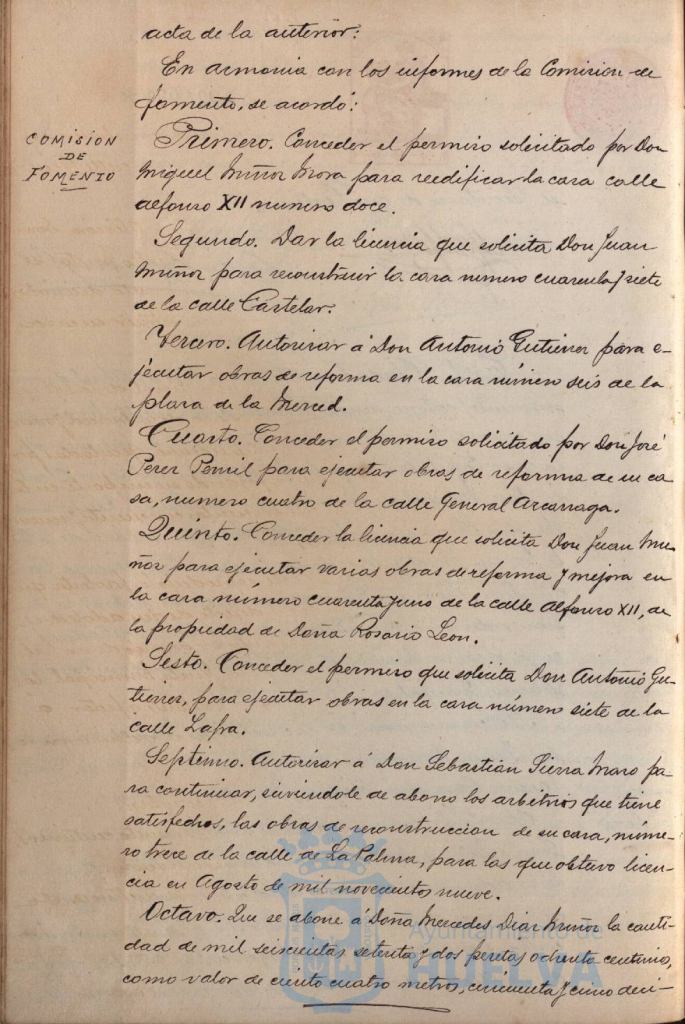 acta de la anterior:
En armonia con los informes de la Comision de
fomento, se acordó:
COMISION
DE
FOMENTO
Primero. Conceder el permiso solicitado por Don
Miguel Muñoz Mora para reedificar la casa calle
Alfonso XII numero doce.
Segundo. Dar la licencia que solicita Don Juan
Muñoz para reconstruir la casa número cuarenta y siete
de la calle Castelar.
Tercero. Autorizar á Don Antonio Gutierrez para e-
jecutar obras de reforma en la casa número seis de la
plaza de la Merced.
Cuarto. Conceder el permiso solicitado por Don José
Perez Pemil para ejecutar obras de reforma de su ca
sa, numero cuatro de la calle General Azcarraga.
Quinto. Conceder la licencia que solicita Don Juan Mu-
ñoz para ejecutar varias obras de reforma y mejora en
la casa número cuarenta y uno de la calle Alfonso XII, de
la propiedad de Doña Rosario Leon.
Sesto. Conceder el permiso que solicita Don Antonio Gu-
tierrez, para ejecutar obras en la casa número siete de la
calle Zafra.
Septimo. Autorizar á Don Sebastián Sierra Mazo pa
ra continuar, sirviendole de abono los arbitrios que tiene
satisfechos, las obras de reconstruccion de su casa, núme-
ro trece de la calle de La Palma, para las que obtuvo licen-
cia en Agosto de mil novecientos nueve.
Octavo. Que se abone á Doña Mercedes Diaz Muñoz la canti-
dad de mil seiscientas setenta y dos pesetas ochenta centimos,
como valor de ciento cuatro metros, cincuenta y cinco deci-
Ayuntamiento de
HUELVA